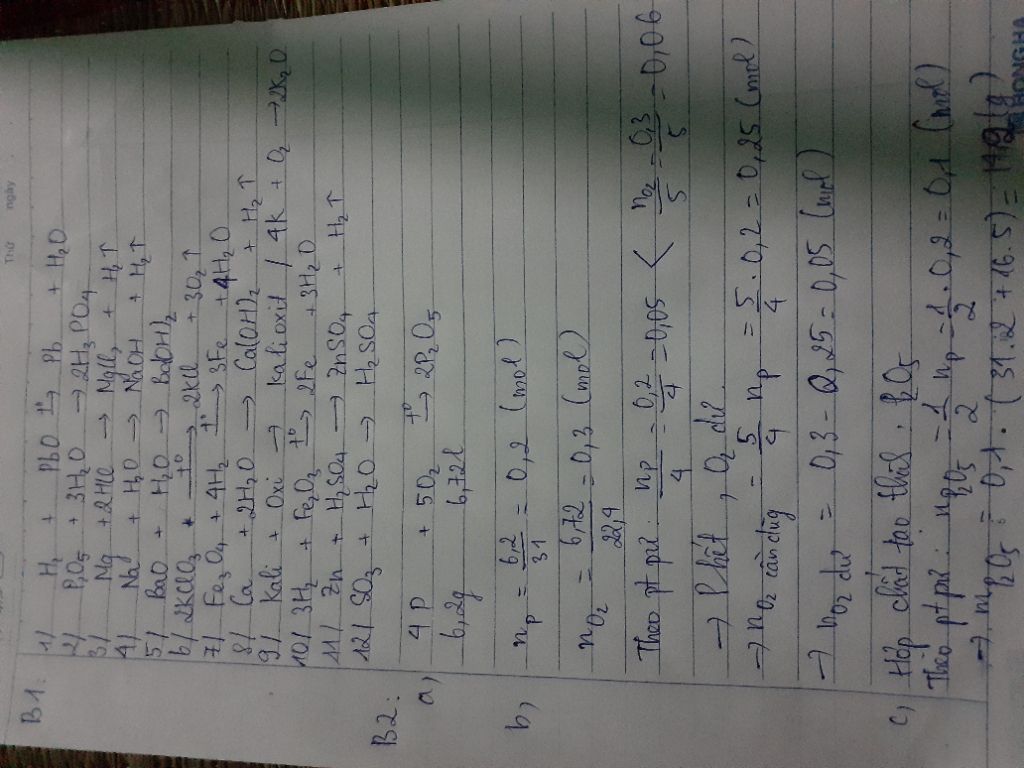 Thứ ngày
B1:
1) H₂ + PbO –t°→ Pb + H₂O
2) P₂O₅ + 3H₂O → 2H₃PO₄
3) Mg + 2HCl → MgCl₂ + H₂↑
4) Na + H₂O → NaOH + H₂↑
5) BaO + H₂O → Ba(OH)₂
6) 2KClO₃ –t°→ 2KCl + 3O₂↑
7) Fe₃O₄ + 4H₂ –t°→ 3Fe + 4H₂O
8) Ca + 2H₂O → Ca(OH)₂ + H₂↑
9) Kali + Oxi → Kali oxit / 4K + O₂ → 2K₂O
10) 3H₂ + Fe₂O₃ –t°→ 2Fe + 3H₂O
11) Zn + H₂SO₄ → ZnSO₄ + H₂↑
12) SO₃ + H₂O → H₂SO₄
B2:
a, 4P + 5O₂ –t°→ 2P₂O₅
6,2g 6,72l
b, nP = 6,2/31 = 0,2 (mol)
nO₂ = 6,72/22,4 = 0,3 (mol)
Theo pt pứ: nP/4 = 0,2/4 = 0,05 < n₂/5 = 0,3/5 = 0,06
→ P hết, O₂ dư
→ nO₂ cần dùng = 5/4 nP = 5/4 . 0,2 = 0,25 (mol)
→ nO₂ dư = 0,3 – 0,25 = 0,05 (mol)
c, Hợp chất tạo thành: P₂O₅
Theo pt pứ: nP₂O₅ = 1/2 nP = 1/2 . 0,2 = 0,1 (mol)
→ mP₂O₅ = 0,1 . (31.2 + 16.5) = (g)
HONGHA